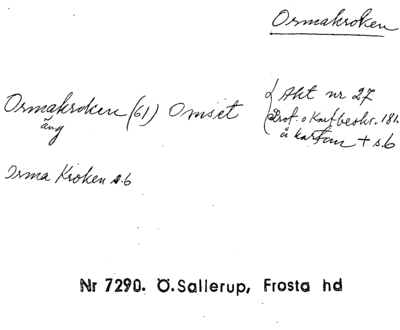 Ormakroken
Ormakroken (61) Omset
äng
Akt nr 27
Prof. o Kartbeskr. 181
å kartan + s.6
Orma Kroken s.6
Nr 7290. Ö. Sallerup, Frosta hd